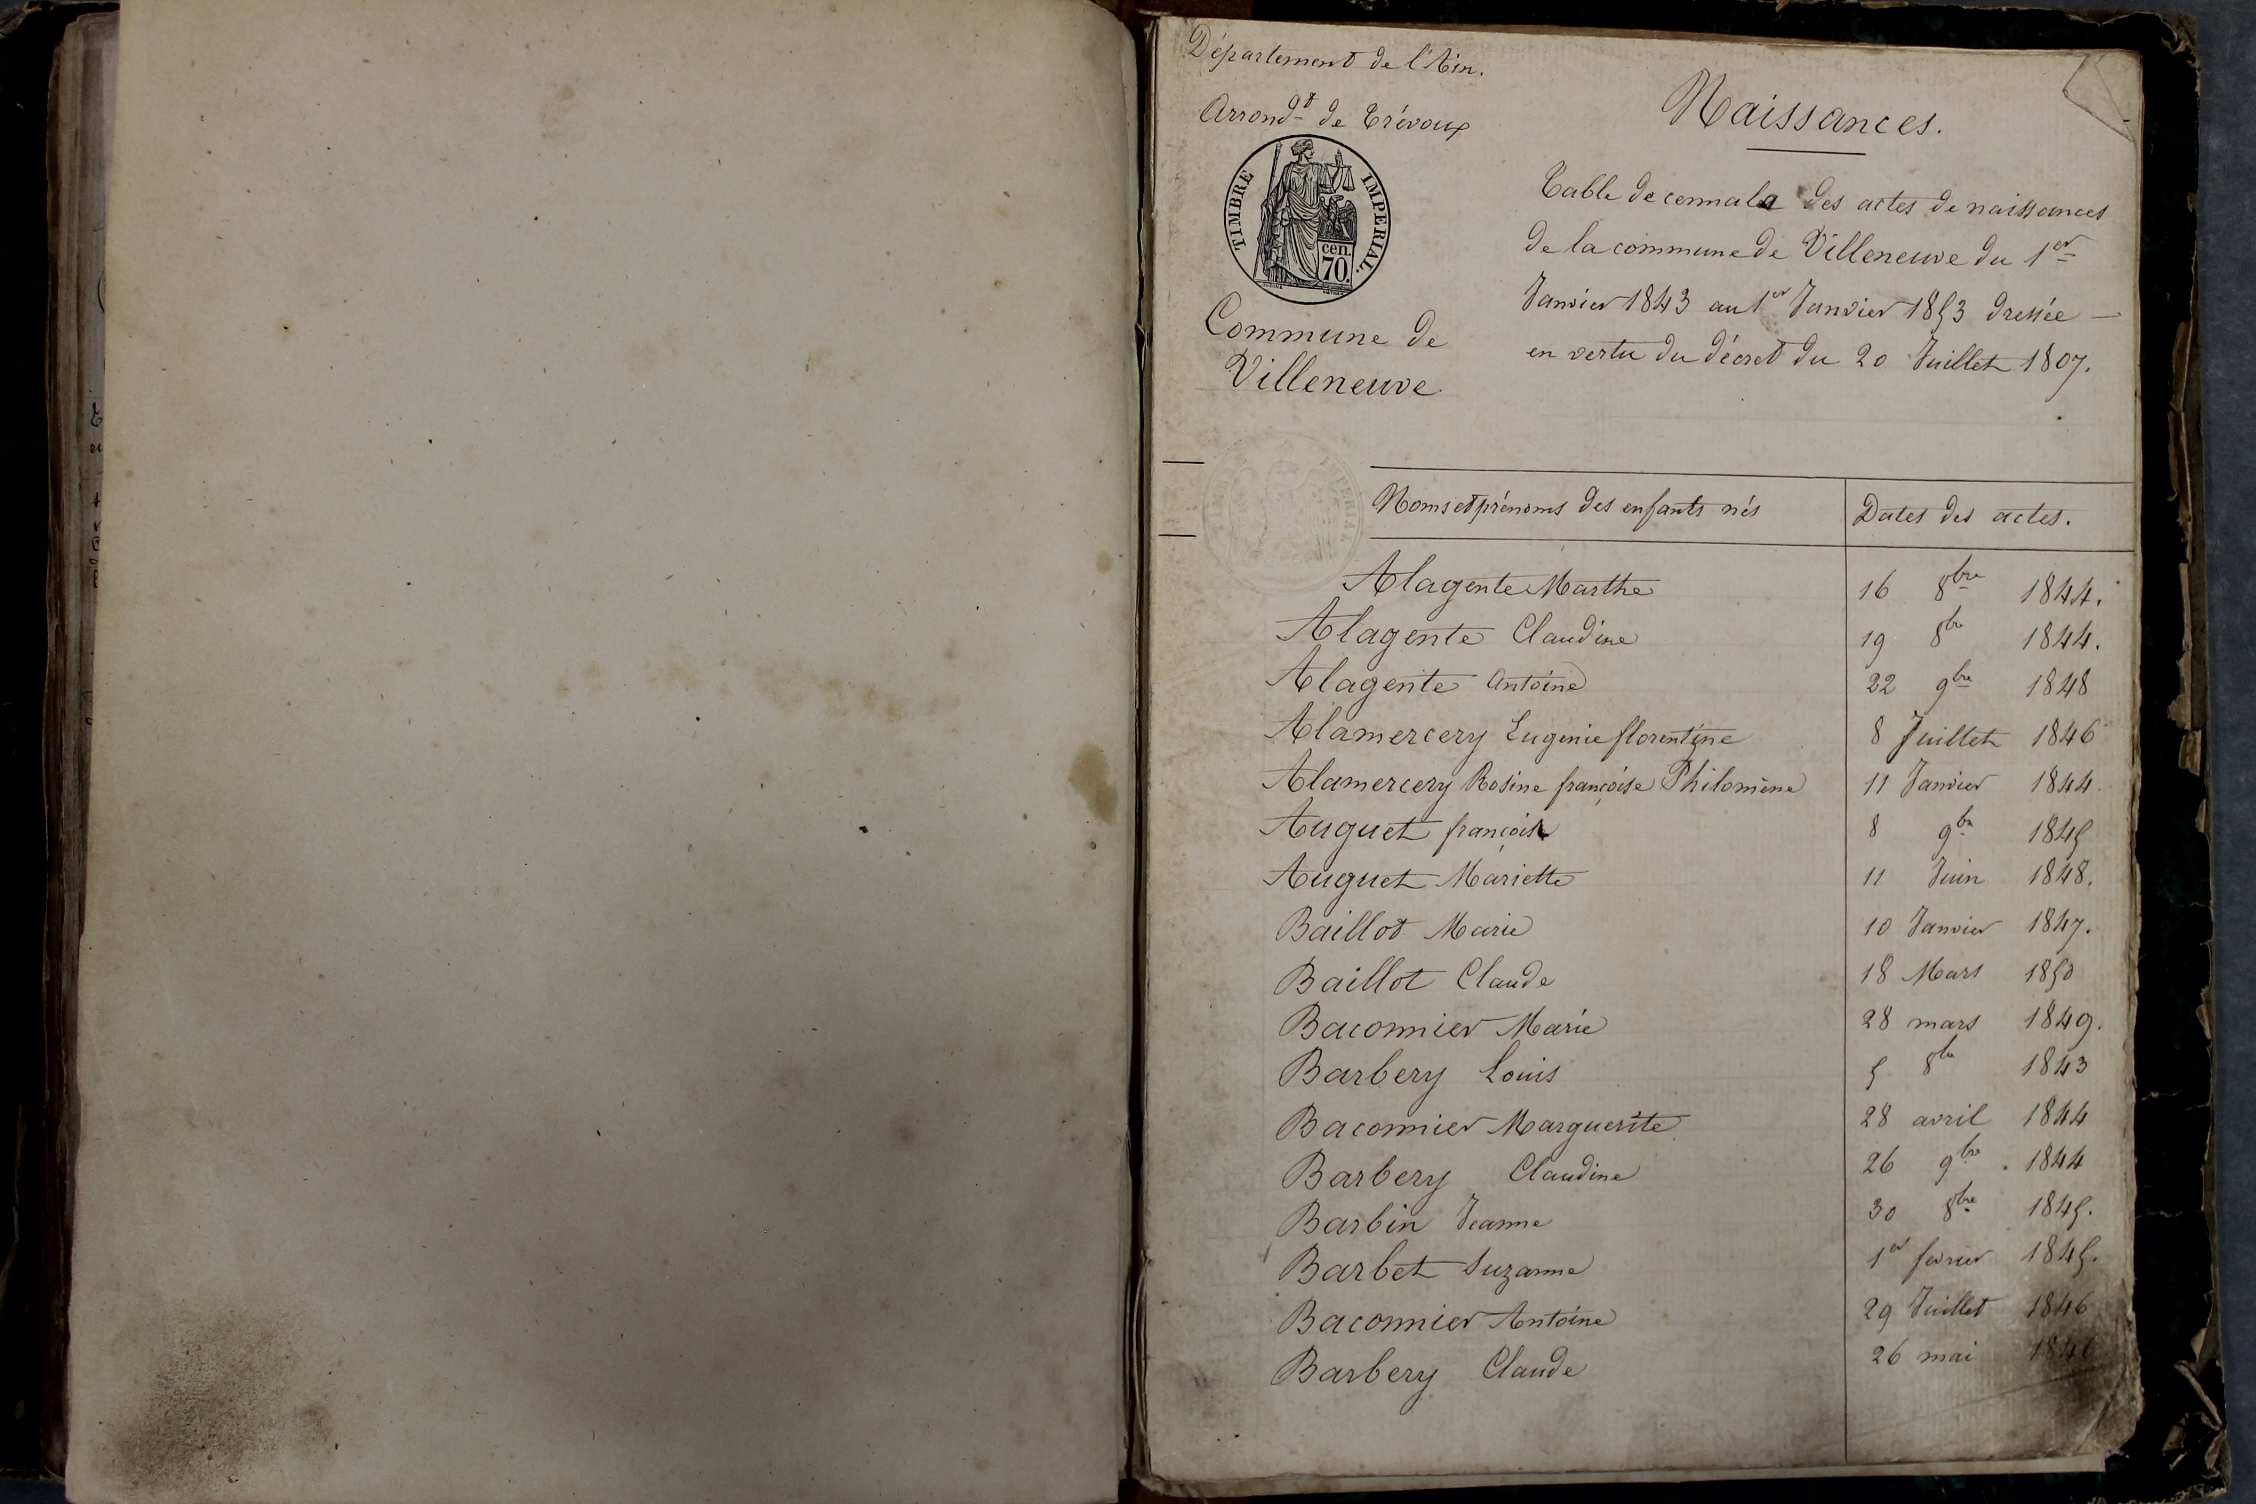 Département de l'Ain.
Arrondt de Trévoux
TIMBRE IMPERIAL.
cen.
70.
Commune de
Villeneuve
Naissances.
Table decennale des actes de naissances
de la commune de Villeneuve du 1er
Janvier 1843 au 1er Janvier 1853 dressée —
en vertu du décret du 20 Juillet 1807.
Noms et prénoms des enfants nés Dates des actes.
Alagente Marthe 16 8bre 1844.
Alagente Claudine 19 8bre 1844.
Alagente Antoine 22 9bre 1848
Alamercery Eugenie florentine 8 Juillet 1846
Alamercery Rosine françoise Philomène 11 Janvier 1844.
Auguet françois 8 9bre 1845
Auguet Mariette 11 Juin 1848.
Baillot Marie 10 Janvier 1847.
Baillot Claude 18 Mars 1850
Baconnier Marie 28 mars 1849.
Barbery Louis 5 8bre 1843
Baconnier Marguerite 28 avril 1844
Barbery Claudine 26 9bre 1844
Barbin Jeanne 30 8bre 1845.
Barbet Suzanne 1er fevrier 1845.
Baconnier Antoine 29 Juillet 1846
Barbery Claude 26 mai 1846